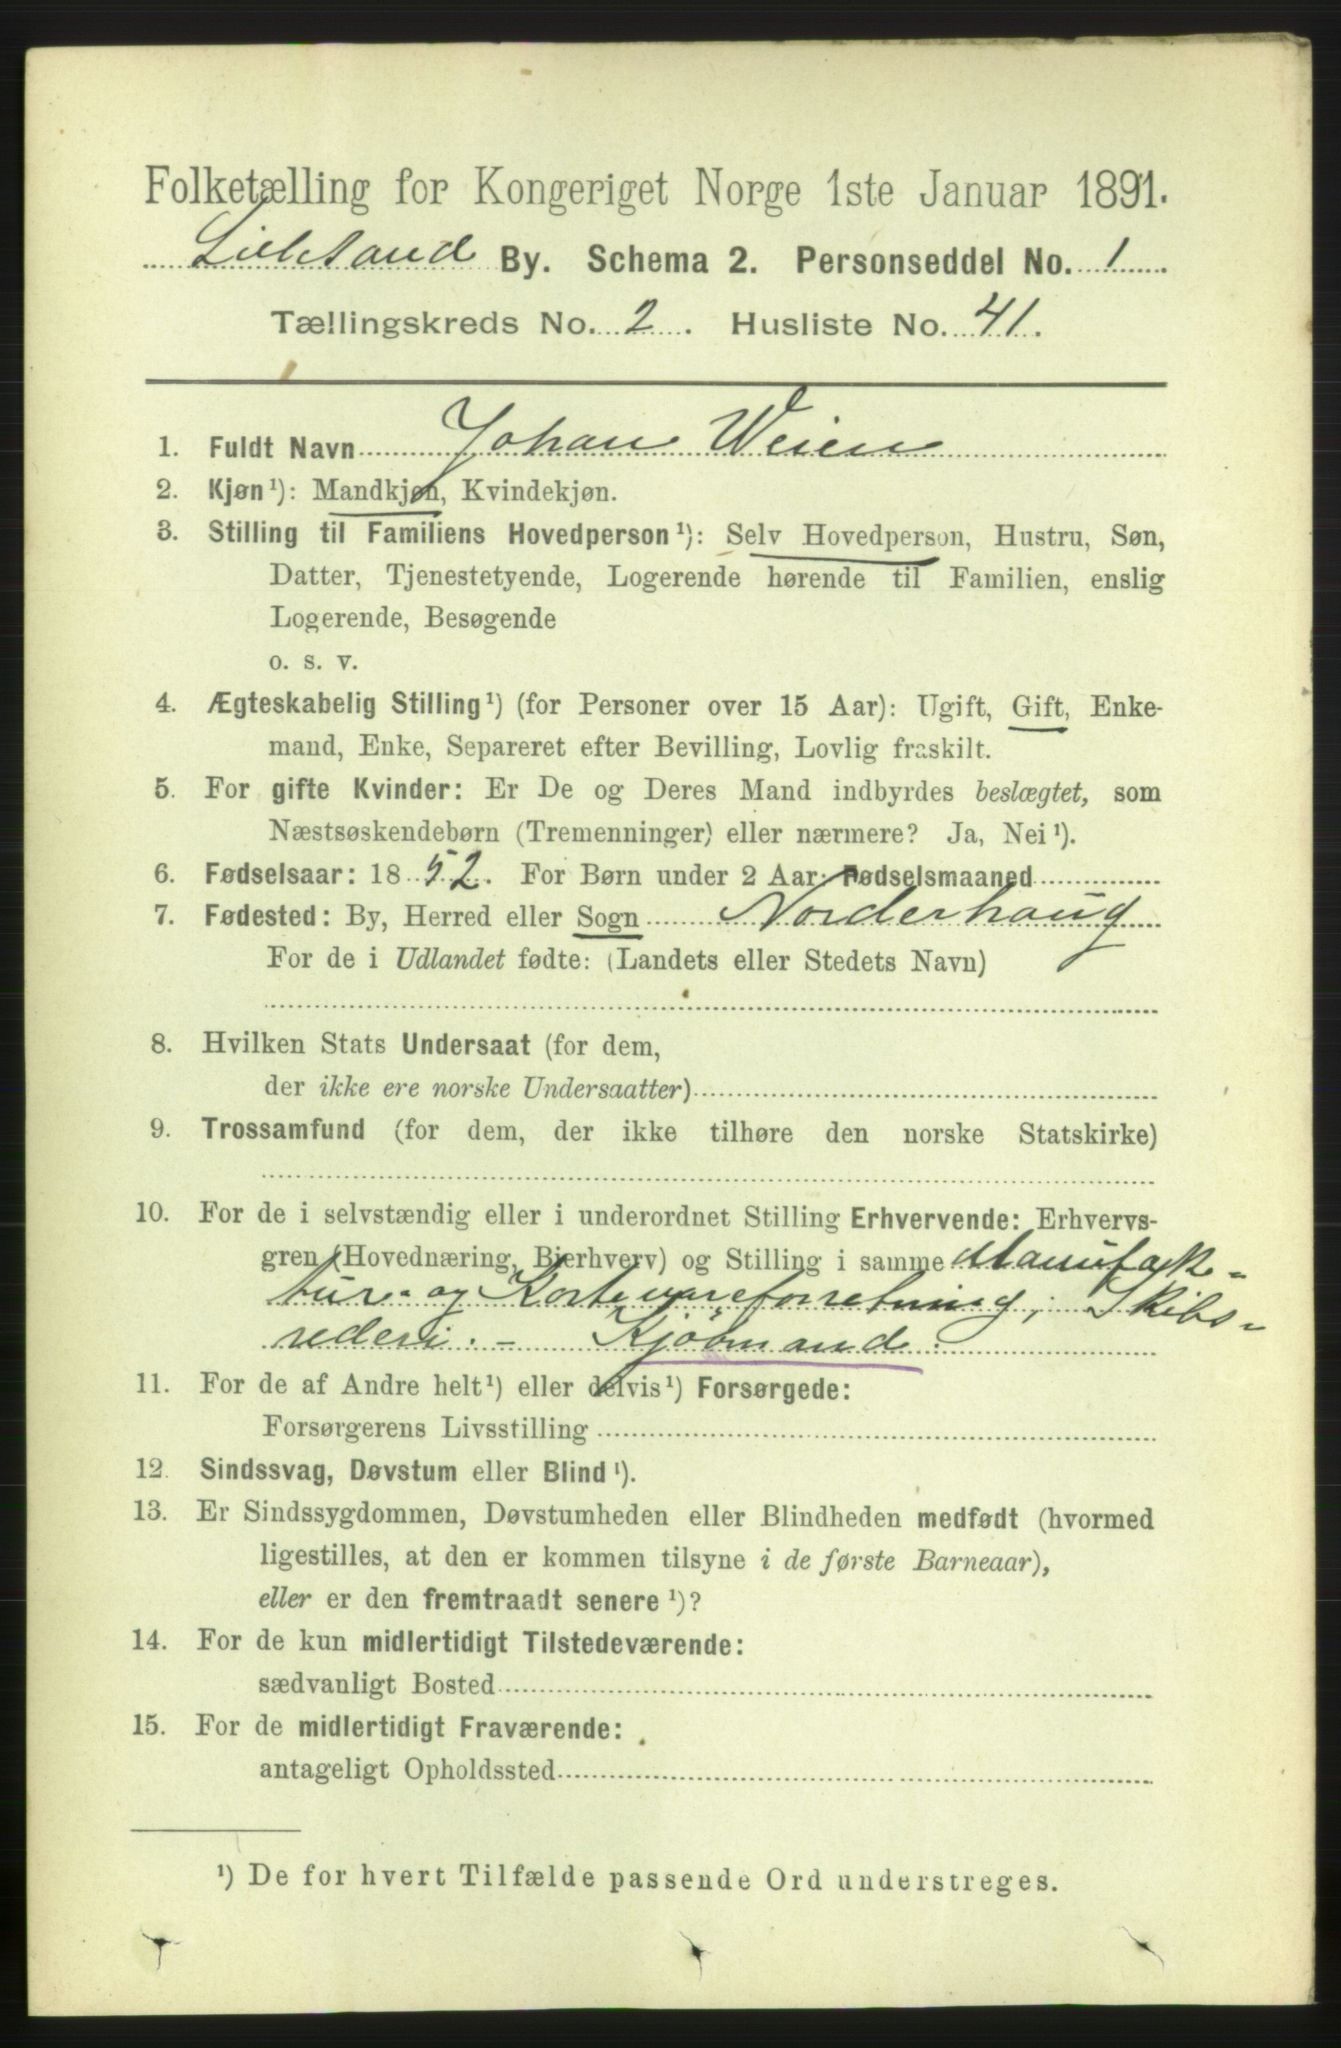 Folketælling for Kongeriget Norge 1ste Januar 1891.
Lillesand By. Schema 2. Personseddel No. 1
Tællingskreds No. 2. Husliste No. 41.
1. Fuldt Navn Johan Weien
2. Kjøn¹): Mandkjøn, Kvindekjøn.
3. Stilling til Familiens Hovedperson¹): Selv Hovedperson, Hustru, Søn,
Datter, Tjenestetyende, Logerende hørende til Familien, enslig
Logerende, Besøgende
o. s. v.
4. Ægteskabelig Stilling¹) (for Personer over 15 Aar): Ugift, Gift, Enke-
mand, Enke, Separeret efter Bevilling, Lovlig fraskilt.
5. For gifte Kvinder: Er De og Deres Mand indbyrdes beslægtet, som
Næstsøskendebørn (Tremenninger) eller nærmere? Ja, Nei¹).
6. Fødselsaar: 1852. For Børn under 2 Aar: Fødselsmaaned
7. Fødested: By, Herred eller Sogn Norderhaug
For de i Udlandet fødte: (Landets eller Stedets Navn)
8. Hvilken Stats Undersaat (for dem,
der ikke ere norske Undersaatter)
9. Trossamfund (for dem, der ikke tilhøre den norske Statskirke)
10. For de i selvstændig eller i underordnet Stilling Erhvervende: Erhvervs-
gren (Hovednæring, Bierhverv) og Stilling i samme Manufak-
tur- og Kortevareforretning; Skibs-
rederi. - Kjöbmand.
11. For de af Andre helt¹) eller delvis¹) Forsørgede:
Forsørgerens Livsstilling
12. Sindssvag, Døvstum eller Blind¹).
13. Er Sindssygdommen, Døvstumheden eller Blindheden medfødt (hvormed
ligestilles, at den er kommen tilsyne i de første Barneaar),
eller er den fremtraadt senere¹)?
14. For de kun midlertidigt Tilstedeværende:
sædvanligt Bosted
15. For de midlertidigt Fraværende:
antageligt Opholdssted
¹) De for hvert Tilfælde passende Ord understreges.